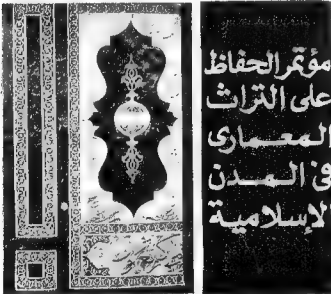 مؤتمر الحفاظ
على التراث
المعمارى
فى المدن
الإسلامية